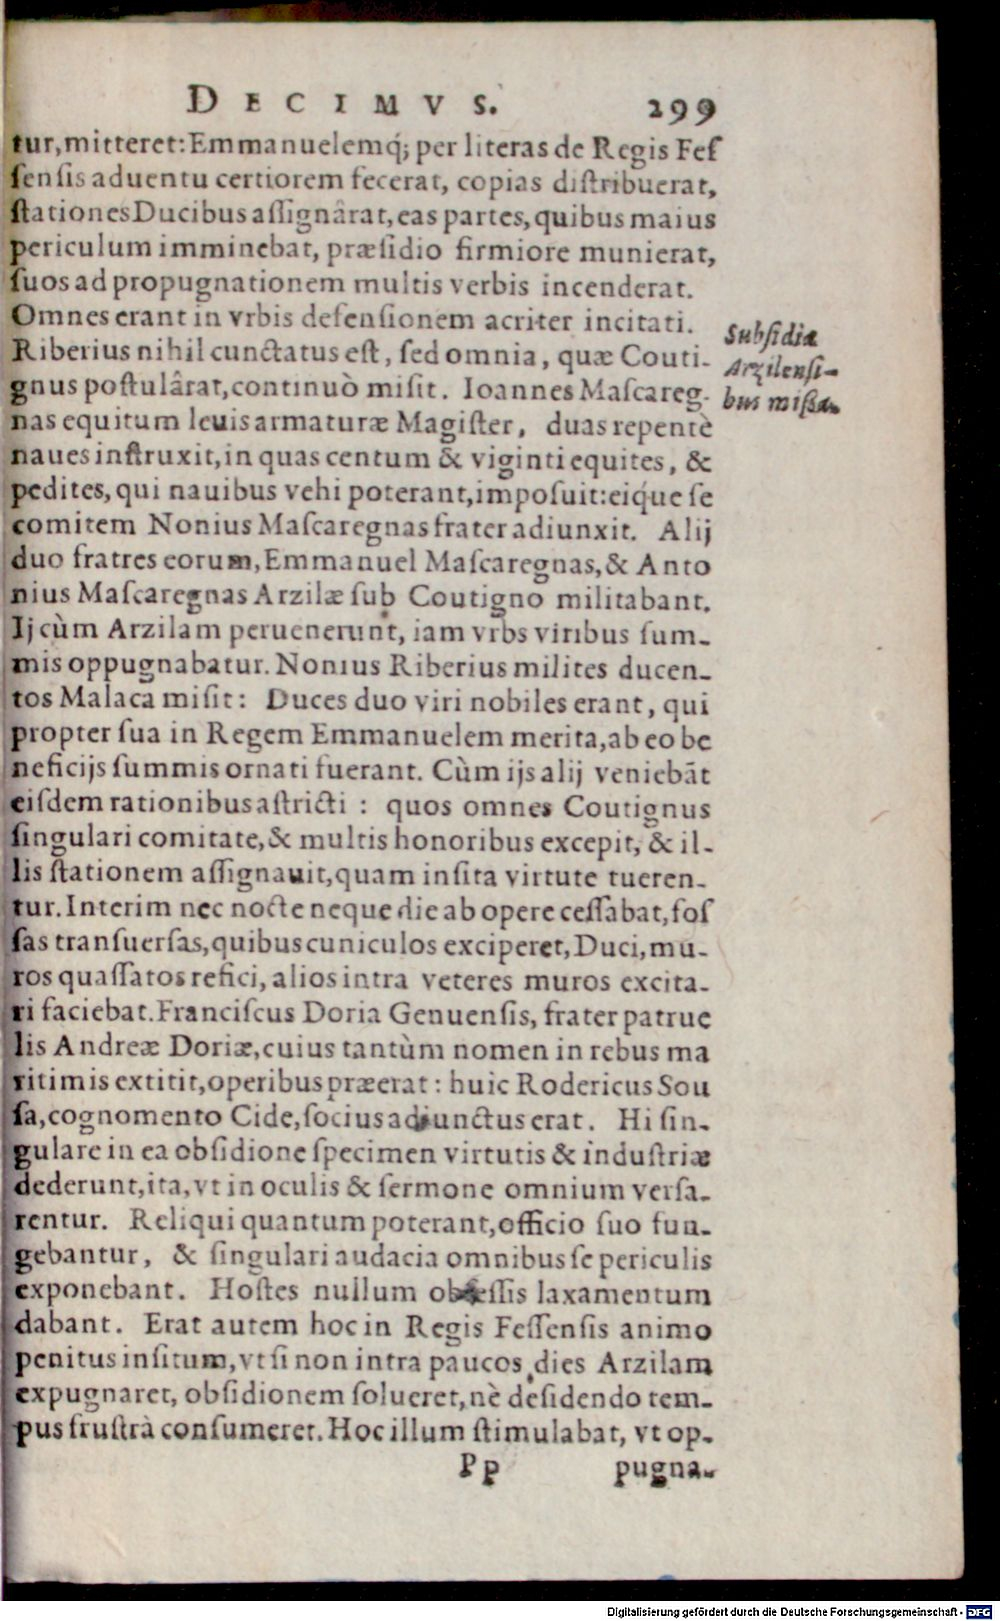 DECIMVS. 299
tur,mitteret:Emmanuelemq́; per literas de Regis Feſ
ſenſis aduentu certiorem fecerat, copias diſtribuerat,
ſtationes Ducibus aſſignârat,eas partes,quibus maius
periculum imminebat, præſidio firmiore munierat,
ſuos ad propugnationem multis verbis incenderat.
Omnes erant in vrbis defenſionem acriter incitati.
Riberius nihil cunctatus eſt, ſed omnia, quæ Couti-
gnus poſtulârat,continuò miſit. Ioannes Maſcareg-
nas equitum leuis armaturæ Magiſter, duas repentè
naues inſtruxit,in quas centum & viginti equites, &
pedites, qui nauibus vehi poterant,impoſuit:eique ſe
comitem Nonius Maſcaregnas frater adiunxit. Alij
duo fratres eorum,Emmanuel Maſcaregnas,& Anto
nius Maſcaregnas Arzilæ ſub Coutigno militabant.
Ij cùm Arzilam peruenerunt, iam vrbs viribus ſum-
mis oppugnabatur. Nonius Riberius milites ducen-
tos Malaca miſit: Duces duo viri nobiles erant, qui
propter ſua in Regem Emmanuelem merita,ab eo be
neficijs ſummis ornati fuerant. Cùm ijs alij veniebāt
eiſdem rationibus aſtricti : quos omnes Coutignus
ſingulari comitate,& multis honoribus excepit, & il-
lis ſtationem aſſignauit,quam inſita virtute tueren-
tur. Interim nec nocte neque die ab opere ceſſabat,foſ
ſas tranſuerſas,quibus cuniculos exciperet,Duci,mu-
ros quaſſatos refici, alios intra veteres muros excita-
ri faciebat. Franciſcus Doria Genuenſis, frater patrue
lis Andreæ Doriæ,cuius tantùm nomen in rebus ma
ritimis extitit,operibus præerat : huic Rodericus Sou
ſa,cognomento Cide,ſocius adiunctus erat. Hi ſin-
gulare in ea obſidione ſpecimen virtutis & induſtriæ
dederunt,ita,vt in oculis & ſermone omnium verſa-
rentur. Reliqui quantum poterant,officio ſuo fun-
gebantur, & ſingulari audacia omnibus ſe periculis
exponebant. Hoſtes nullum obſeſſis laxamentum
dabant. Erat autem hoc in Regis Feſſenſis animo
penitus inſitum,vt ſi non intra paucos dies Arzilam
expugnaret, obſidionem ſolueret,nè deſidendo tem-
pus fruſtrà conſumeret. Hoc illum ſtimulabat, vt op-
Pp pugna-
Subſidia
Arzilenſi-
bus miſſa.
Digitalisierung gefördert durch die Deutsche Forschungsgemeinschaft - DFG